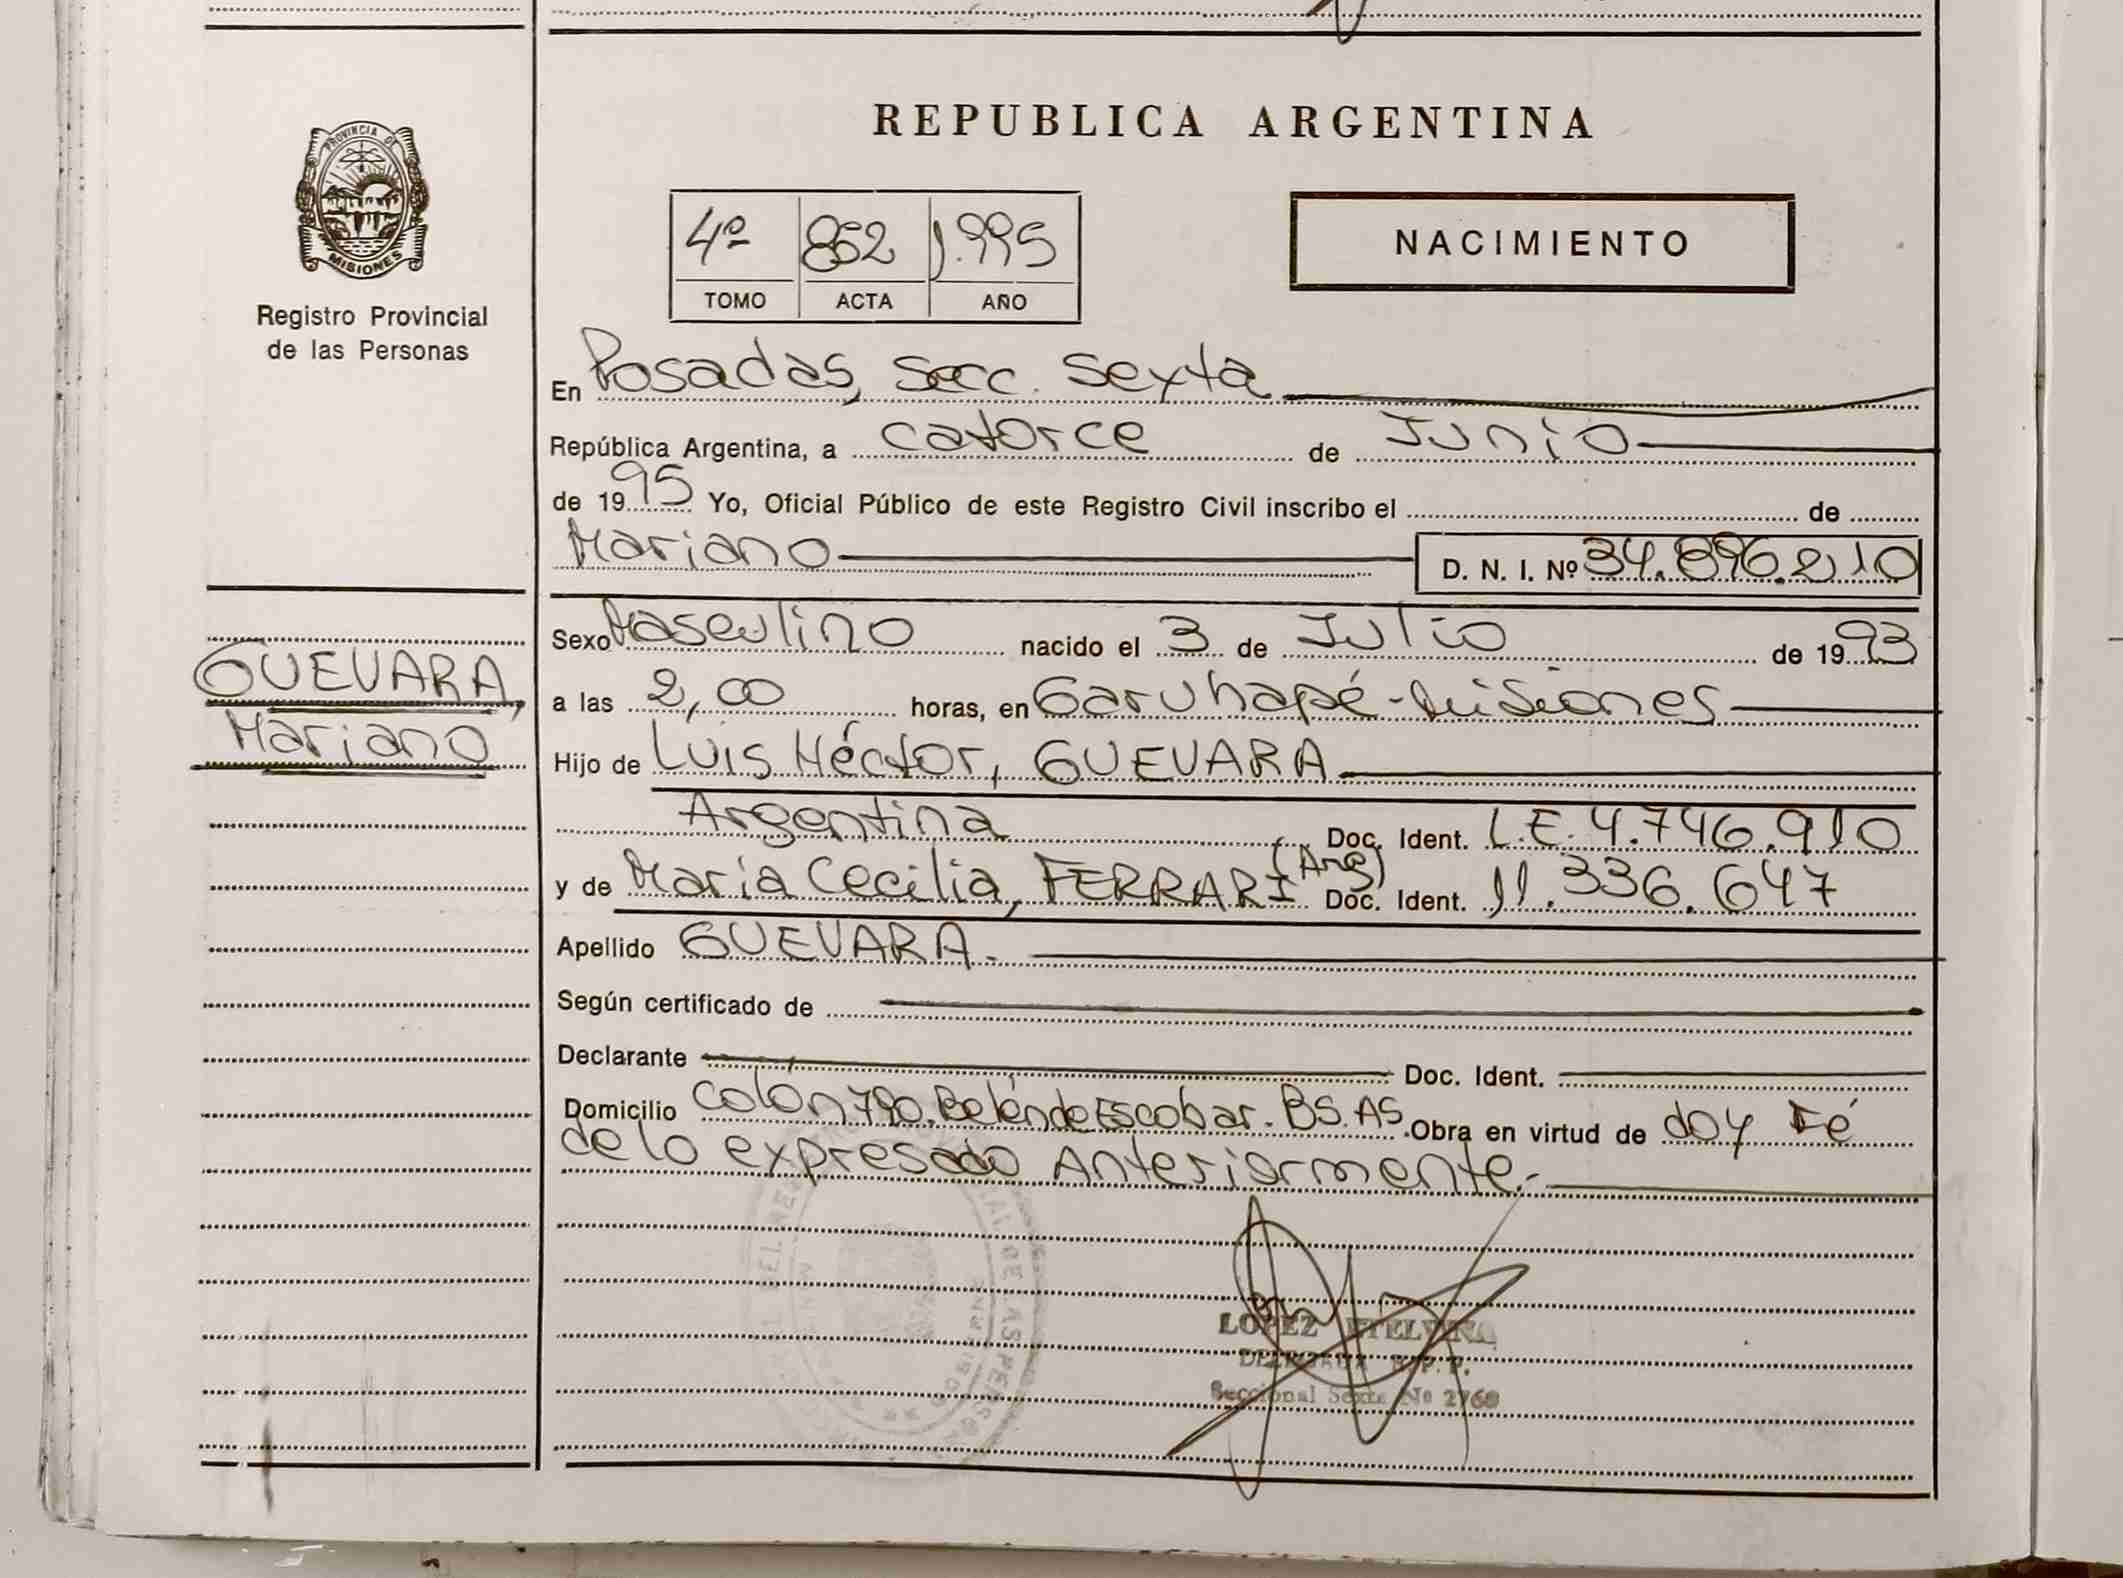 PROVINCIA DE
MISIONES
Registro Provincial
de las Personas
REPUBLICA ARGENTINA
4º 852 1.995
TOMO ACTA AÑO
NACIMIENTO
En Posadas, Secc. Sexta
República Argentina, a catorce de Junio
de 1995 Yo, Oficial Público de este Registro Civil inscribo el de
Mariano D. N. I. Nº 34.896.210
Sexo Masculino nacido el 3 de Julio de 1993
GUEVARA,
Mariano
a las 2,00 horas, en Garuhapé - Misiones
Hijo de Luis Héctor, GUEVARA
Argentina Doc. Ident. L.E. 4.746.910
y de María Cecilia, FERRARI (Arg) Doc. Ident. 11.336.647
Apellido GUEVARA.
Según certificado de
Declarante Doc. Ident.
Domicilio Colón 790. Belén de Escobar. BS.AS. Obra en virtud de doy Fé
de lo expresado Anteriormente.-
LOPEZ ETELVINA
DELEGADA R.P.P.
Seccional Sexta Nº 2760